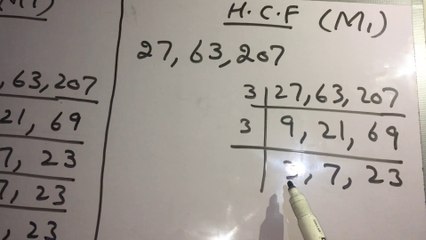 H.C.F (M1)
27, 63, 207
3 27, 63, 207
3 9, 21, 69
, 7, 23
, 63, 207
21, 69
7, 23
7, 23
, 23